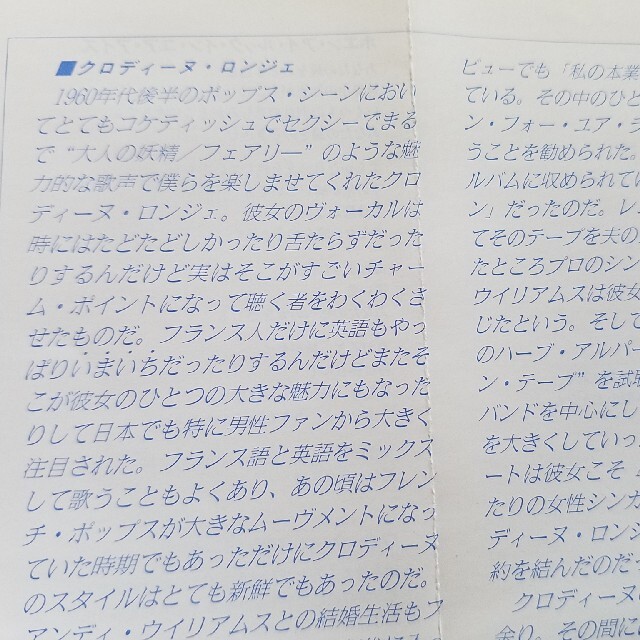 ■クロディーヌ・ロンジェ
1960年代後半のポップス・シーンにおい
てとてもコケティッシュでセクシーでまる
で“大人の妖精/フェアリー”のような魅
力的な歌声で僕らを楽しませてくれたクロ
ディーヌ・ロンジェ。彼女のヴォーカルは
時にはたどたどしかったり舌たらずだった
りするんだけど実はそこがすごいチャー
ム・ポイントになって聴く者をわくわくさ
せたものだ。フランス人だけに英語もやっ
ぱりいまいちだったりするんだけどまたそ
こが彼女のひとつの大きな魅力にもなった
りして日本でも特に男性ファンから大きく
注目された。フランス語と英語をミックス
して歌うこともよくあり、あの頃はフレン
チ・ポップスが大きなムーヴメントになっ
ていた時期でもあっただけにクロディーヌ
のスタイルはとても新鮮でもあったのだ。
アンディ・ウイリアムスとの結婚生活もア
ビューでも「私の本業
ている。その中のひと
ン・フォー・ユア・ラ
うことを勧められた。
ルバムに収められてい
ン」だったのだ。レ
てそのテープを夫の
たところプロのシン
ウイリアムスは彼女
じたという。そして
のハーブ・アルパー
ン・テープ”を試聴
バンドを中心にし
を大きくしていっ
ートは彼女こそ
たりの女性シンガ
ディーヌ・ロンジ
約を結んだのだっ
クロディーヌの
余り、その間に